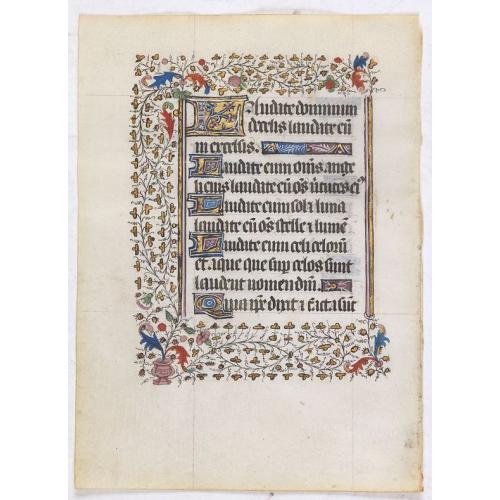 Laudate dominum
de celis laudate eũ
in excelsis.
Laudate eum om̃s ange
li eius laudate eũ om̃s uirtutes ei9
Laudate eum sol ⁊ luna
laudate eũ om̃s stelle ⁊ lumẽ
Laudate eum celi celorũ
et aque que sup̃ celos sunt
laudent nomen dñi.
Quia ip̃e dixit ⁊ facta sũt